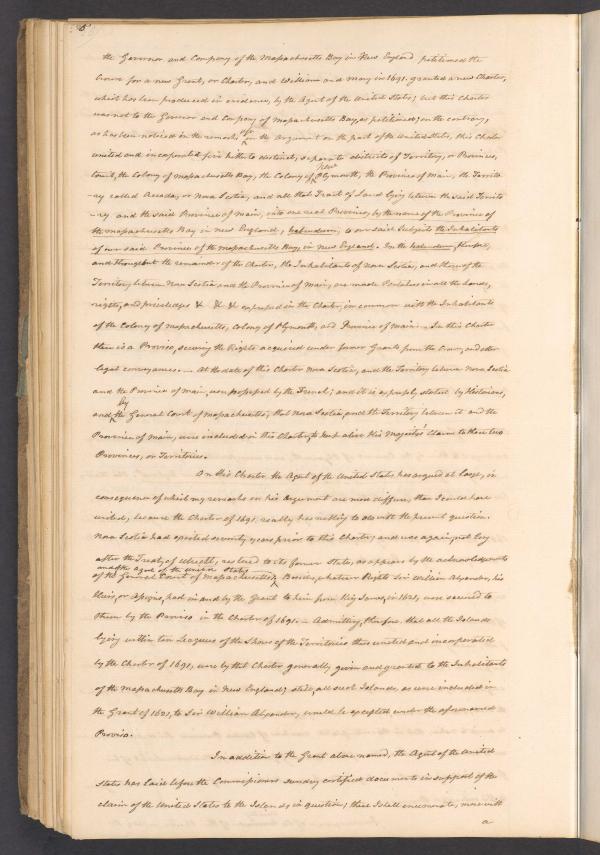 6
the Governor and Company of the Massachusetts Bay in New England petitioned the
Crown for a new Grant, or Charter, and William and Mary in 1691. granted a new Charter,
which has been produced in evidence, by the Agent of the United States; but this Charter
was not to the Governor and Company of Massachusetts Bay, as petitioned; on the contrary,
as has been noticed in the remarks upon the Argument on the part of the United States, this Charter
united and incorporated five hitherto distinct, separate districts of Territory, or Provinces,
to wit, the Colony of Massachusetts Bay, the Colony of New Plymouth, the Province of Main, the Territo
-ry called Accada, or Nova Scotia, and all that Tract of Land lying between the said Territo
-ry and the said Province of Main, into one real Province, by the name of the Province of
the Massachusetts Bay in New England, habendum, to our said Subjects the Inhabitants
of our said Province of the Massachusetts Bay, in New England. In the habendum, therefore,
and throughout the remainder of the Charter, the Inhabitants of Nova Scotia, and those of the
Territory between Nova Scotia and the Province of Main, are made Partakers in all the lands,
rights, and priviledges & & & expressed in the Charter, in common with the Inhabitants
of the Colony of Massachusetts, Colony of Plymouth, and Province of Main. In this Charter
there is a Proviso, securing the Rights acquired under former Grants from the Crown, and other
legal conveyances. — At the date of this Charter Nova Scotia, and the Territory between Nova Scotia
and the Province of Main, were possessed by the French; and it is expressly stated by Historians,
and by the General Court of Massachusetts, that Nova Scotia, and the Territory between it and the
Province of Main, were included in this Charter, to keep alive His Majesty's Claim to these two
Provinces, or Territories.
On this Charter the Agent of the United States has argued at large, in
consequence of which my remarks on his Argument are more diffuse, than I could have
wished, because the Charter of 1691, really has nothing to do with the present question.
Nova Scotia had existed seventy years prior to this Charter; and was again, just
after the Treaty of Utrecht, restored to its former State, as appears by the acknowledgements
and of the Agent of the United States
of the General Court of Massachusetts. Besides, whatever Rights Sir William Alexander, his
Heirs, or Assigns, had in and by the Grant to him from King James, in 1621, were secured to
them by the Proviso in the Charter of 1691. — Admitting, therefore, that all the Islands
lying within ten Leagues of the Shores of the Territories thus united and incorporated
by the Charter of 1691, were by that Charter generally given and granted to the Inhabitants
of the Massachusetts Bay in New England; still, all such Islands, as were included in
the Grant of 1621, to Sir William Alexander, would be excepted under the aforenamed
Proviso.
In addition to the Grant above named, the Agent of the United
States has laid before the Commissioners sundry certified documents in support of the
claim of the United States to the Islands in question; these I shall enumerate, more with
a